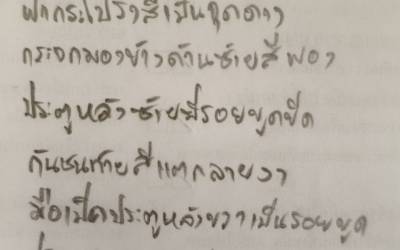 ฝากระโปรงสีเป็นจุดด่าง
กระจกมองข้างด้านซ้ายสีพอง
ประตูหลังซ้ายมีรอยขูดขีด
กันชนท้ายสีแตกลายงา
มือเปิดประตูหลังขวาเป็นรอยขูด